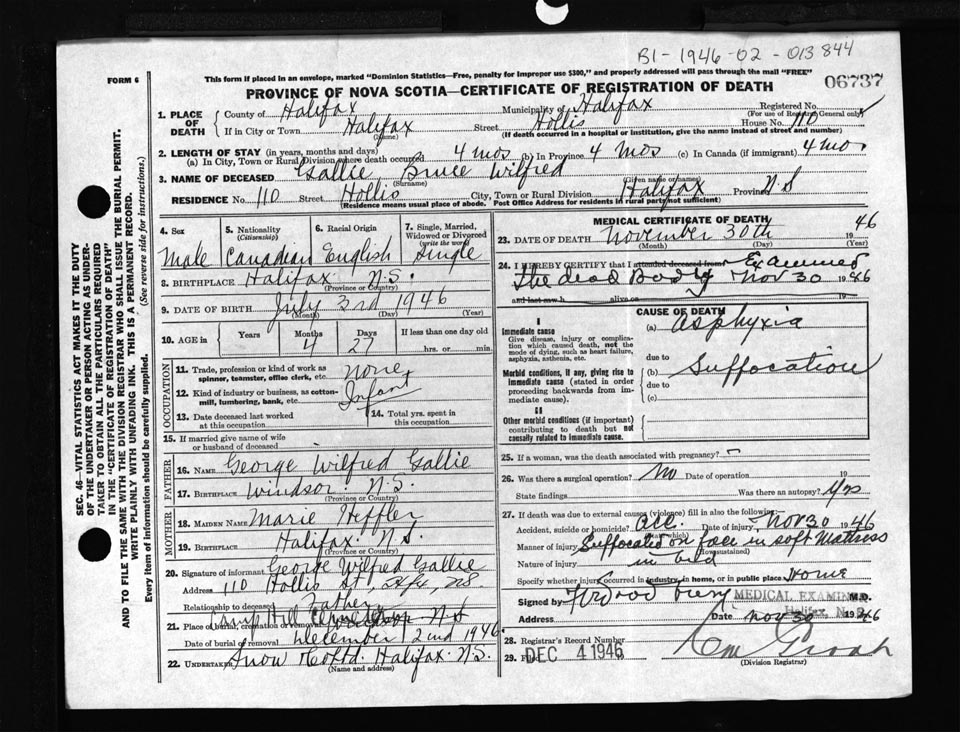 B1-1946-02-013844
FORM 6
This form if placed in an envelope, marked "Dominion Statistics—Free, penalty for improper use $300," and properly addressed will pass through the mail "FREE"
06737
PROVINCE OF NOVA SCOTIA—CERTIFICATE OF REGISTRATION OF DEATH
1. PLACE OF DEATH
County of Halifax Municipality of Halifax Registered No.
(For use of Registrar General only)
If in City or Town Halifax Street Hollis House No. 110
(Name) (If death occurred in a hospital or institution, give the name instead of street and number)
2. LENGTH OF STAY (in years, months and days)
(a) In City, Town or Rural Division where death occurred 4 mos (b) In Province 4 mos (c) In Canada (if immigrant) 4 mo.
3. NAME OF DECEASED Gallie Bruce Wilfred
(Surname) (Given name or names)
RESIDENCE No. 110 Street Hollis City, Town or Rural Division Halifax Province N.S
(Residence means usual place of abode. Post Office Address for residents in rural parts not sufficient)
4. Sex Male
5. Nationality (Citizenship) Canadian
6. Racial Origin English
7. Single, Married, Widowed or Divorced (write the word) Single
8. BIRTHPLACE Halifax N.S.
(Province or Country)
9. DATE OF BIRTH July 3rd 1946
(Month) (Day) (Year)
10. AGE in Years Months 4 Days 27 If less than one day old
hrs. or min.
OCCUPATION
11. Trade, profession or kind of work as spinner, teamster, office clerk, etc. none
12. Kind of industry or business, as cotton-mill, lumbering, bank, etc. Infant
13. Date deceased last worked at this occupation
14. Total yrs. spent in this occupation
15. If married give name of wife or husband of deceased
FATHER
16. NAME George Wilfred Gallie
17. BIRTHPLACE Windsor N.S.
(Province or Country)
MOTHER
18. MAIDEN NAME Marie Heffler
19. BIRTHPLACE Halifax N.S.
(Province or Country)
20. Signature of informant George Wilfred Gallie
Address 110 Hollis St, Hfx, NS
Relationship to deceased Father
21. Place of burial, cremation or removal Camp Hill N.S
Date of burial or removal December 2nd 1946
22. Undertaker Snow Co Ltd. Halifax N.S.
(Name and address)
MEDICAL CERTIFICATE OF DEATH
23. DATE OF DEATH November 30th 1946
(Month) (Day) (Year)
24. I HEREBY CERTIFY that I attended deceased from Examined
the dead Body Nov 30 1946
and last saw h alive on 19
CAUSE OF DEATH
I
Immediate cause
Give disease, injury or complication which caused death, not the mode of dying, such as heart failure, asphyxia, asthenia, etc.
(a) Asphyxia
due to
Morbid conditions, if any, giving rise to immediate cause (stated in order proceeding backwards from immediate cause).
(b) Suffocation
due to
(c)
II
Other morbid conditions (if important) contributing to death but not causally related to immediate cause.
25. If a woman, was the death associated with pregnancy? —
26. Was there a surgical operation? No Date of operation 19
State findings Was there an autopsy? Yes
27. If death was due to external causes (violence) fill in also the following:—
Accident, suicide or homicide? Acc. Date of injury Nov 30 1946
(State which)
Manner of injury Suffocated on face in soft mattress
(How sustained)
Nature of injury in bed
Specify whether injury occurred in industry, in home, or in public place Home
Signed by M.D.
MEDICAL EXAMINER
Halifax, N.S.
Date Nov 30 1946
28. Registrar's Record Number
29. Filed DEC 4 1946
(Division Registrar)
SEC. 46—VITAL STATISTICS ACT MAKES IT THE DUTY
OF THE UNDERTAKER OR PERSON ACTING AS UNDER-
TAKER TO OBTAIN ALL THE PARTICULARS REQUIRED
IN THE "CERTIFICATE OF REGISTRATION OF DEATH"
AND TO FILE THE SAME WITH THE DIVISION REGISTRAR WHO SHALL ISSUE THE BURIAL PERMIT.
WRITE PLAINLY WITH UNFADING INK. THIS IS A PERMANENT RECORD.
Every item of information should be carefully supplied. (See reverse side for instructions.)